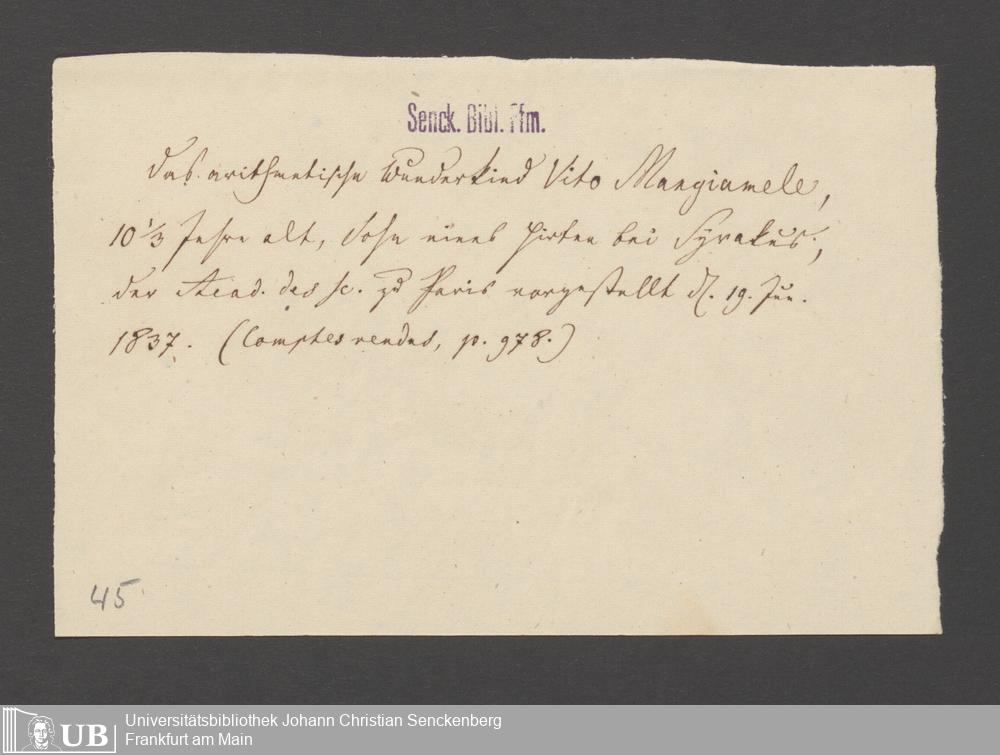 Senck. Bibl. Ffm.
Das arithmetische Wunderkind Vito Mangiamele,
10 1/3 Jahre alt, Sohn eines Hirten bei Syrakus,
der Acad. des sc. zu Paris vorgestellt d. 19. Jun.
1837. (Comptes rendus, p. 978.)
45
UB
Universitätsbibliothek Johann Christian Senckenberg
Frankfurt am Main